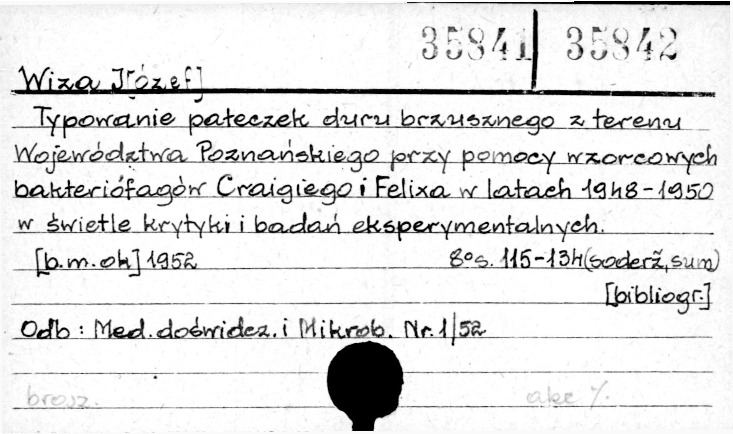 35841 35842
Wiza J[ózef]
Typowanie pałeczek duru brzusznego z terenu
Województwa Poznańskiego przy pomocy wzorcowych
bakteriófagów Craigiego i Felixa w latach 1948-1950
w świetle krytyki i badań eksperymentalnych.
[b.m.ok] 1952 8° s. 115-134 (soderž, sum)
[bibliogr.]
Odb: Med. doświdcz. i Mikrob. Nr. 1/52
brosz. akc %.